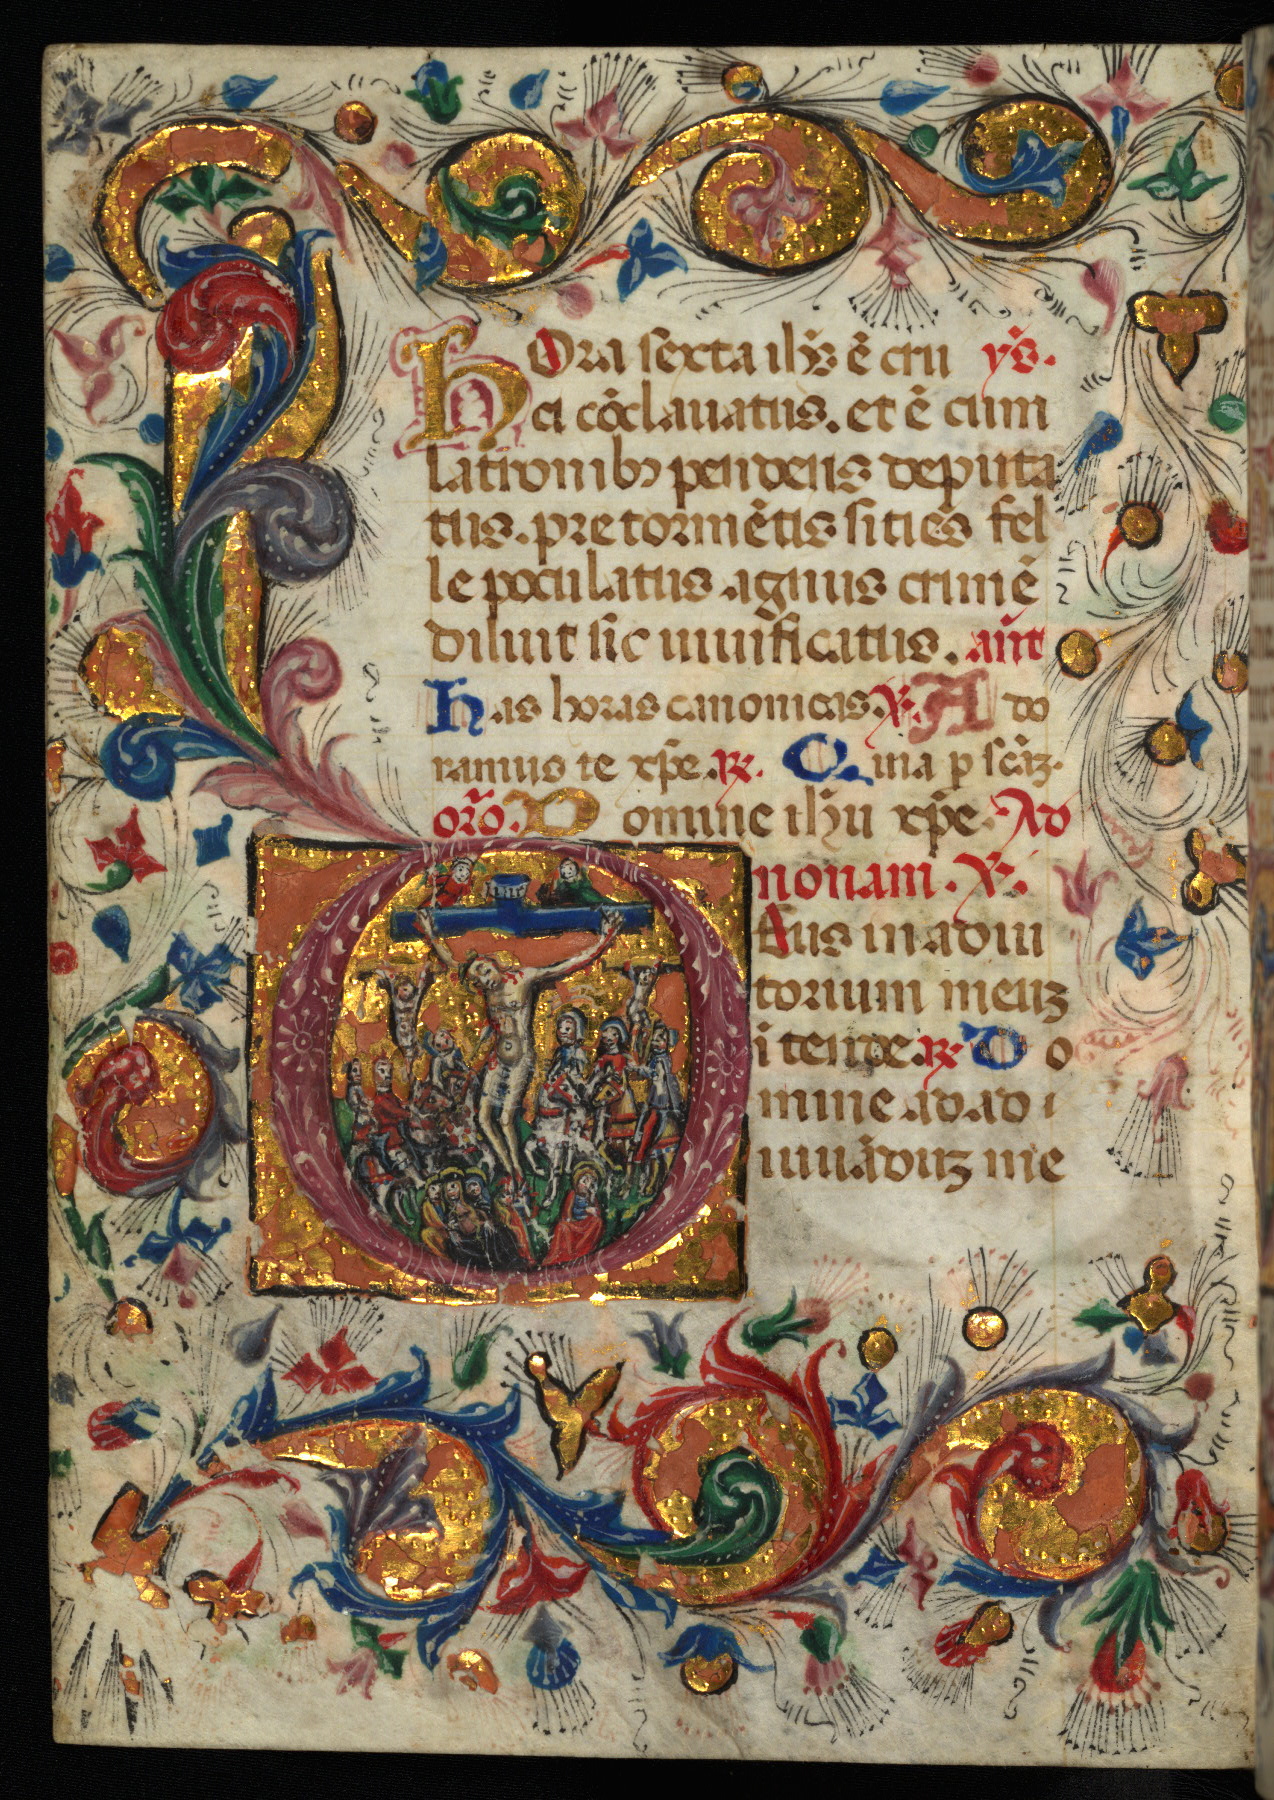 hOra sexta ihs̃ ẽ cru yp̃s.
ci cõclauatus. et ẽ cum
latronibꝫ pendens deputa
tus. pre tormẽtis sities fel
le poculatus agnus crimẽ
diluit sic uiuificatus. ant̃
has horas canonicas. ℣. Ado
ramus te xp̃e. ℟. Quia p scãꝫ.
orõ. Domine ihũ xp̃e. Ad
nonam. ℣.
eus in adiu
torium meuꝫ
i tende. ℟. Do
mine ad ad i
uuãduꝫ me